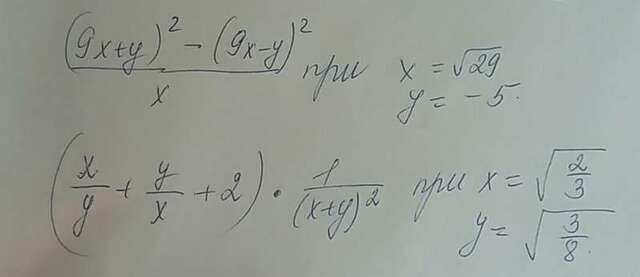 ((9x+y)² - (9x-y)²)/x при x = √29
y = -5.
(x/y + y/x + 2) · 1/(x+y)² при x = √(2/3)
y = √(3/8).